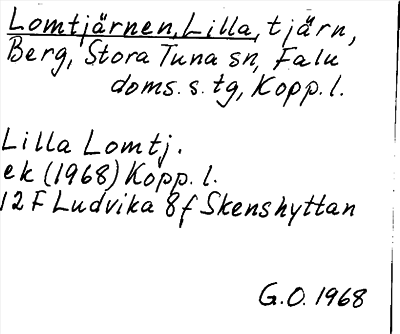 Lomtjärnen, Lilla, tjärn,
Berg, Stora Tuna sn, Falu
doms.s. tg, Kopp. l.
Lilla Lomtj.
ek (1968) Kopp. l.
12 F Ludvika 8f Skenshyttan
G.O. 1968